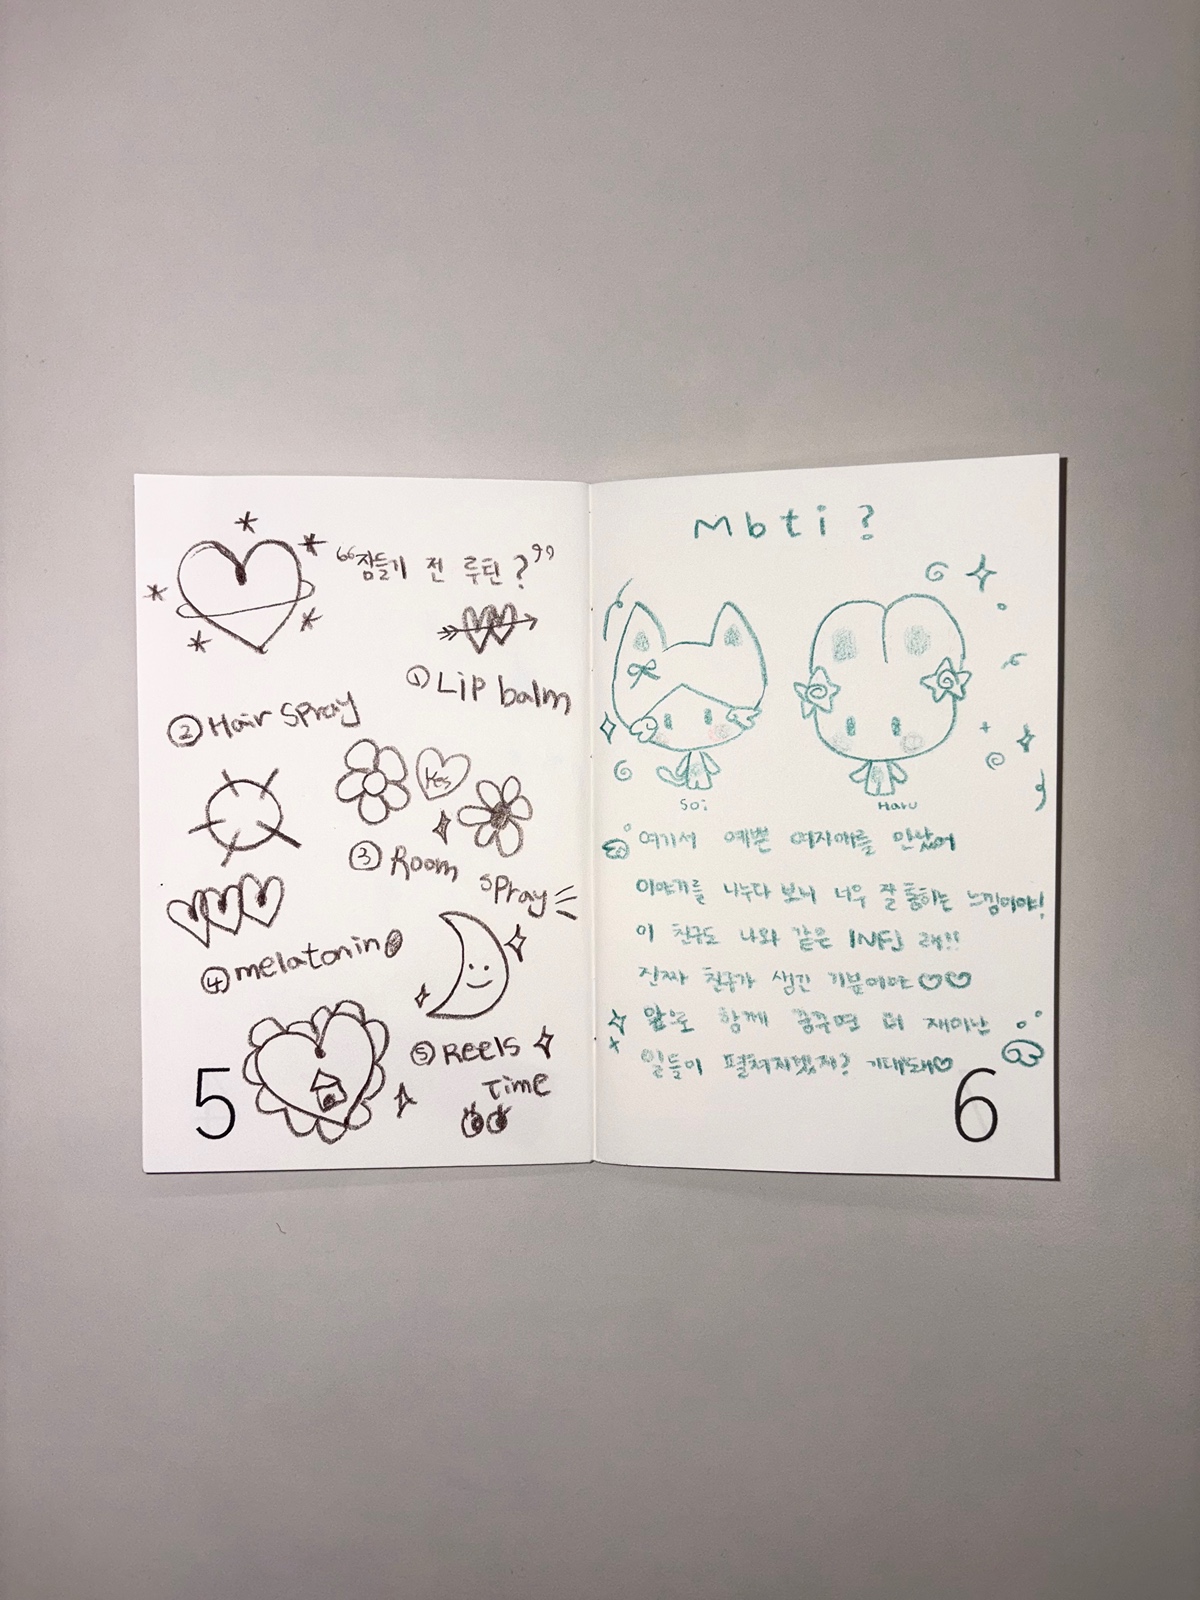 "잠들기 전 루틴?"
① Lip balm
② Hair spray
Yes
③ Room spray
④ melatonin
⑤ Reels Time
5
Mbti?
Soi
Haru
여기서 예쁜 여자애를 만났어
이야기를 나누다 보니 너무 잘 통하는 느낌이야!
이 친구도 나와 같은 INFJ 래!!
진짜 친구가 생긴 기분이야♡♡
앞으로 함께 꿈꾸면 더 재미난
일들이 펼쳐지겠지? 기대돼♡
6